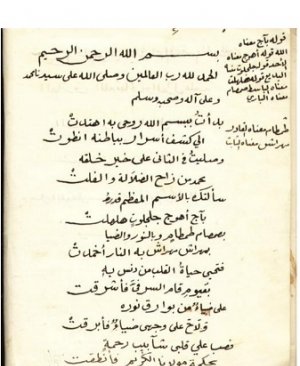 بسم الله الرحمن الرحيم
الحمد لله رب العالمين وصلى الله على سيدنا محمد
وعلى آله وصحبه وسلم
بدأت ببسم الله روحي به اهتدت
الى كشف أسرار بباطنه انطوت
وصليت في الثاني على خير خلقه
محمد من زاح الضلالة والغلت
سألتك بالاسم المعظم قدره
بآج أهوج جلجلوت هلهلت
بصمصام طمطام وبالنور والضيا
بمهراش مهراش به النار أخمدت
فتحيي حياة القلب من دنس به
بقيوم قام السر فيه فأشرقت
على ضياء من بوارق نوره
ولاح على وجهي ضياء فأبرقت
فصب على قلبي شآبيب رحمة
بحكمة مولانا الكريم فأنطقت
قوله بآج معناه
الله قوله أهوج معناه
معناه